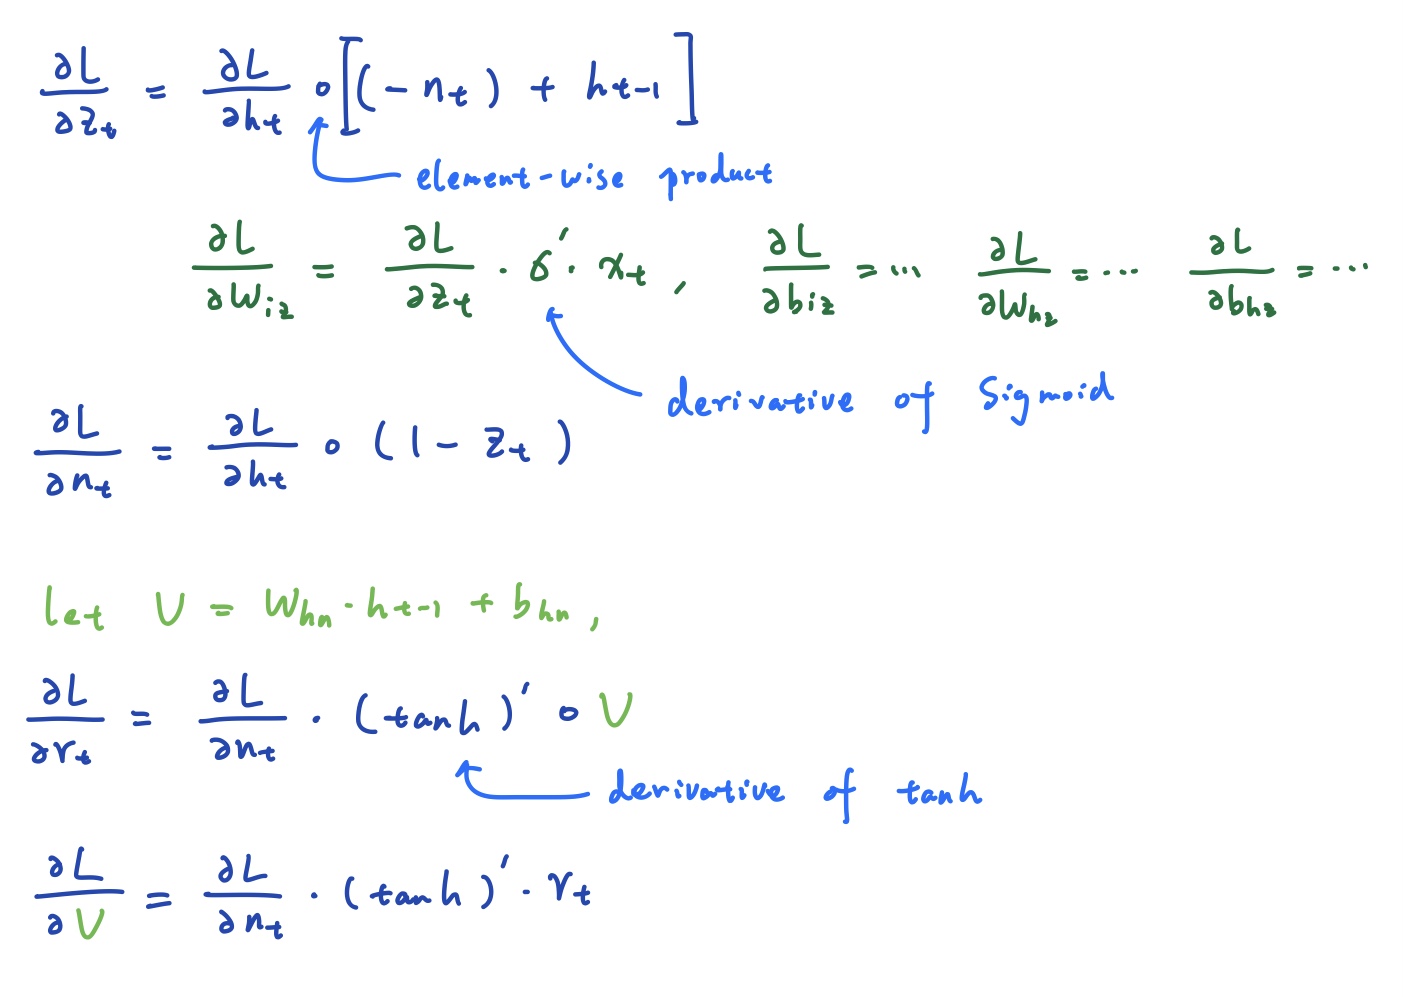 ∂L/∂z_t = ∂L/∂h_t ∘ [(- n_t) + h_{t-1}]
element-wise product
∂L/∂W_{iz} = ∂L/∂z_t · σ' · x_t , ∂L/∂b_{iz} = ... ∂L/∂W_{hz} = ... ∂L/∂b_{hz} = ...
derivative of Sigmoid
∂L/∂n_t = ∂L/∂h_t ∘ (1 - z_t)
let V = W_{hn} · h_{t-1} + b_{hn} ,
∂L/∂r_t = ∂L/∂n_t · (tanh)' ∘ V
derivative of tanh
∂L/∂V = ∂L/∂n_t · (tanh)' · r_t